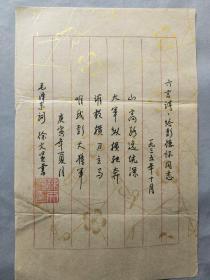 六言诗·给彭德怀同志
一九三五年十月
山高路远坑深
大军纵横驰奔
谁敢横刀立马
唯我彭大将军
庚寅年夏月
毛泽东词 徐文